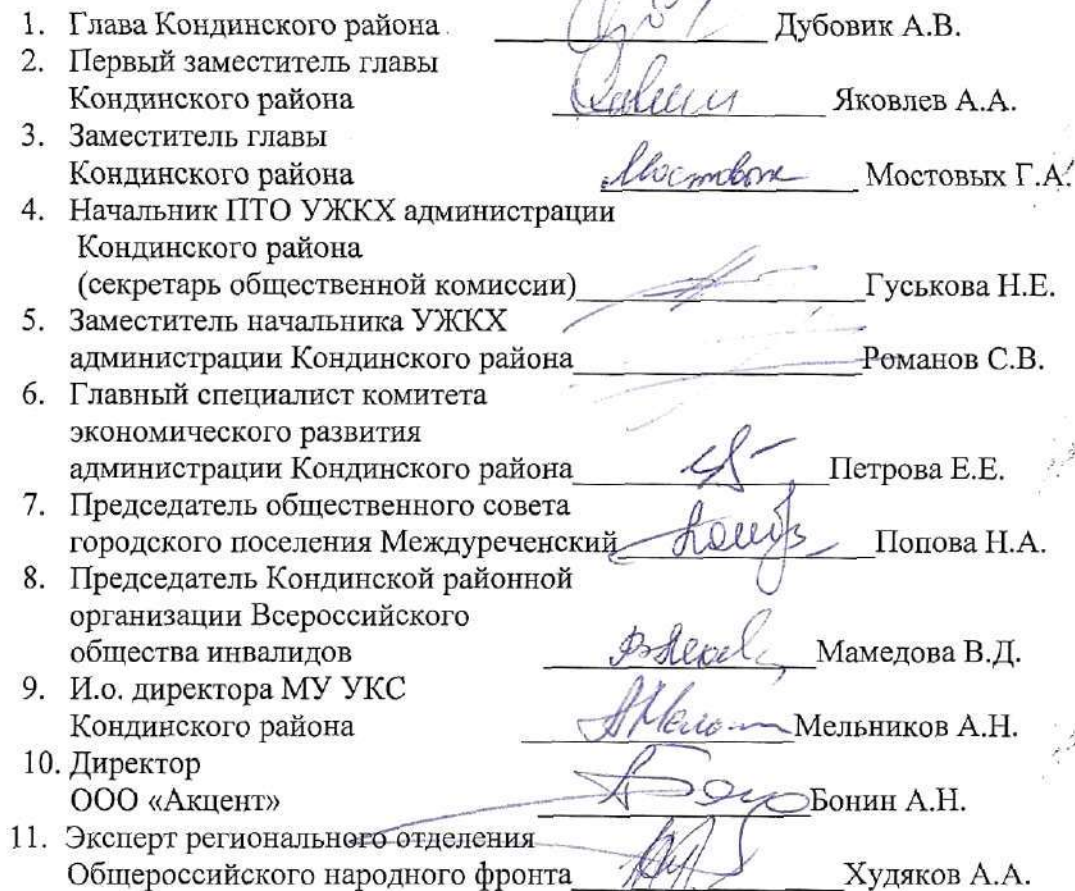 1. Глава Кондинского района Дубовик А.В.
2. Первый заместитель главы
Кондинского района Яковлев А.А.
3. Заместитель главы
Кондинского района Мостовых Г.А.
4. Начальник ПТО УЖКХ администрации
Кондинского района
(секретарь общественной комиссии) Гуськова Н.Е.
5. Заместитель начальника УЖКХ
администрации Кондинского района Романов С.В.
6. Главный специалист комитета
экономического развития
администрации Кондинского района Петрова Е.Е.
7. Председатель общественного совета
городского поселения Междуреченский Попова Н.А.
8. Председатель Кондинской районной
организации Всероссийского
общества инвалидов Мамедова В.Д.
9. И.о. директора МУ УКС
Кондинского района Мельников А.Н.
10. Директор
ООО «Акцент» Бонин А.Н.
11. Эксперт регионального отделения
Общероссийского народного фронта Худяков А.А.